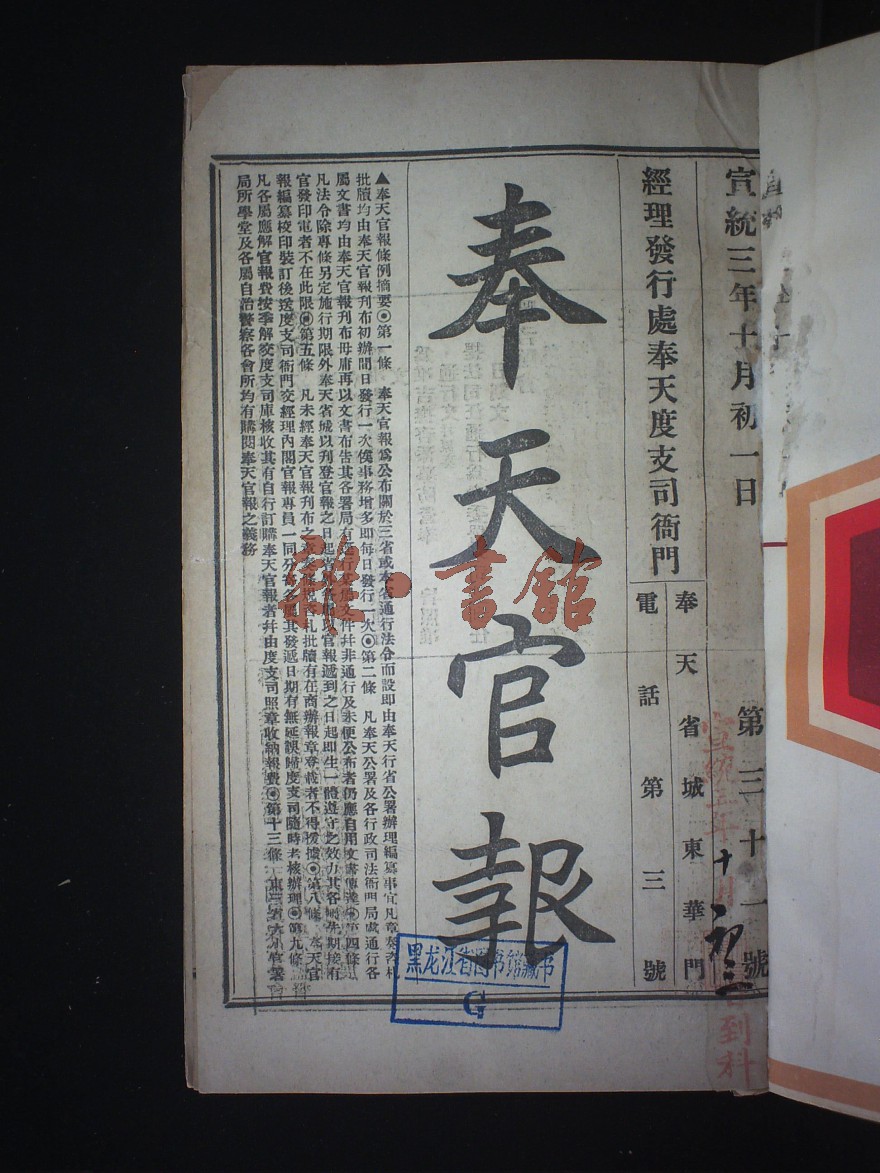 宣統三年十月初一日
第三十一號
經理發行處奉天度支司衙門
奉天省城東華門
電話第三號
奉天官報
▲奉天官報條例摘要◉第一條 奉天官報爲公布關於三省或本省通行法令而設即由奉天行省公署辦理編纂事宜凡章奏咨札
批牘均由奉天官報刊布初辦間日發行一次俟事務增多即每日發行一次◉第二條 凡奉天公署及各行政司法衙門局處通行各
屬文書均由奉天官報刊布毋庸再以文書布告其各署局有文件幷非通行及未便公布者仍應自用文書傳達◉第四條
凡法令除專條另定施行期限外奉天省城以刊登官報之日起以官報遞到之日起即生一體遵守之效力其各屬先期接有
官發印電者不在此限◉第五條 凡未經奉天官報刊布之章奏咨札批牘有在商辦報章登載者不得援據◉第八條 奉天官
報編纂校印裝訂後送度支司衙門交經理內閣官報專員一同分其發遞日期有無延誤歸度支司隨時考核辦理◉第九條
凡各屬應解官報費按季解交度支司庫核收其有自行訂購奉天官報者幷由度支司照章收納報費◉第十三條 東三省大小官署
局所學堂及各屬自治警察各會所均有購閱奉天官報之義務
宣統三年十月初三日到科
龍·書館
黑龙江省图书馆藏书
G